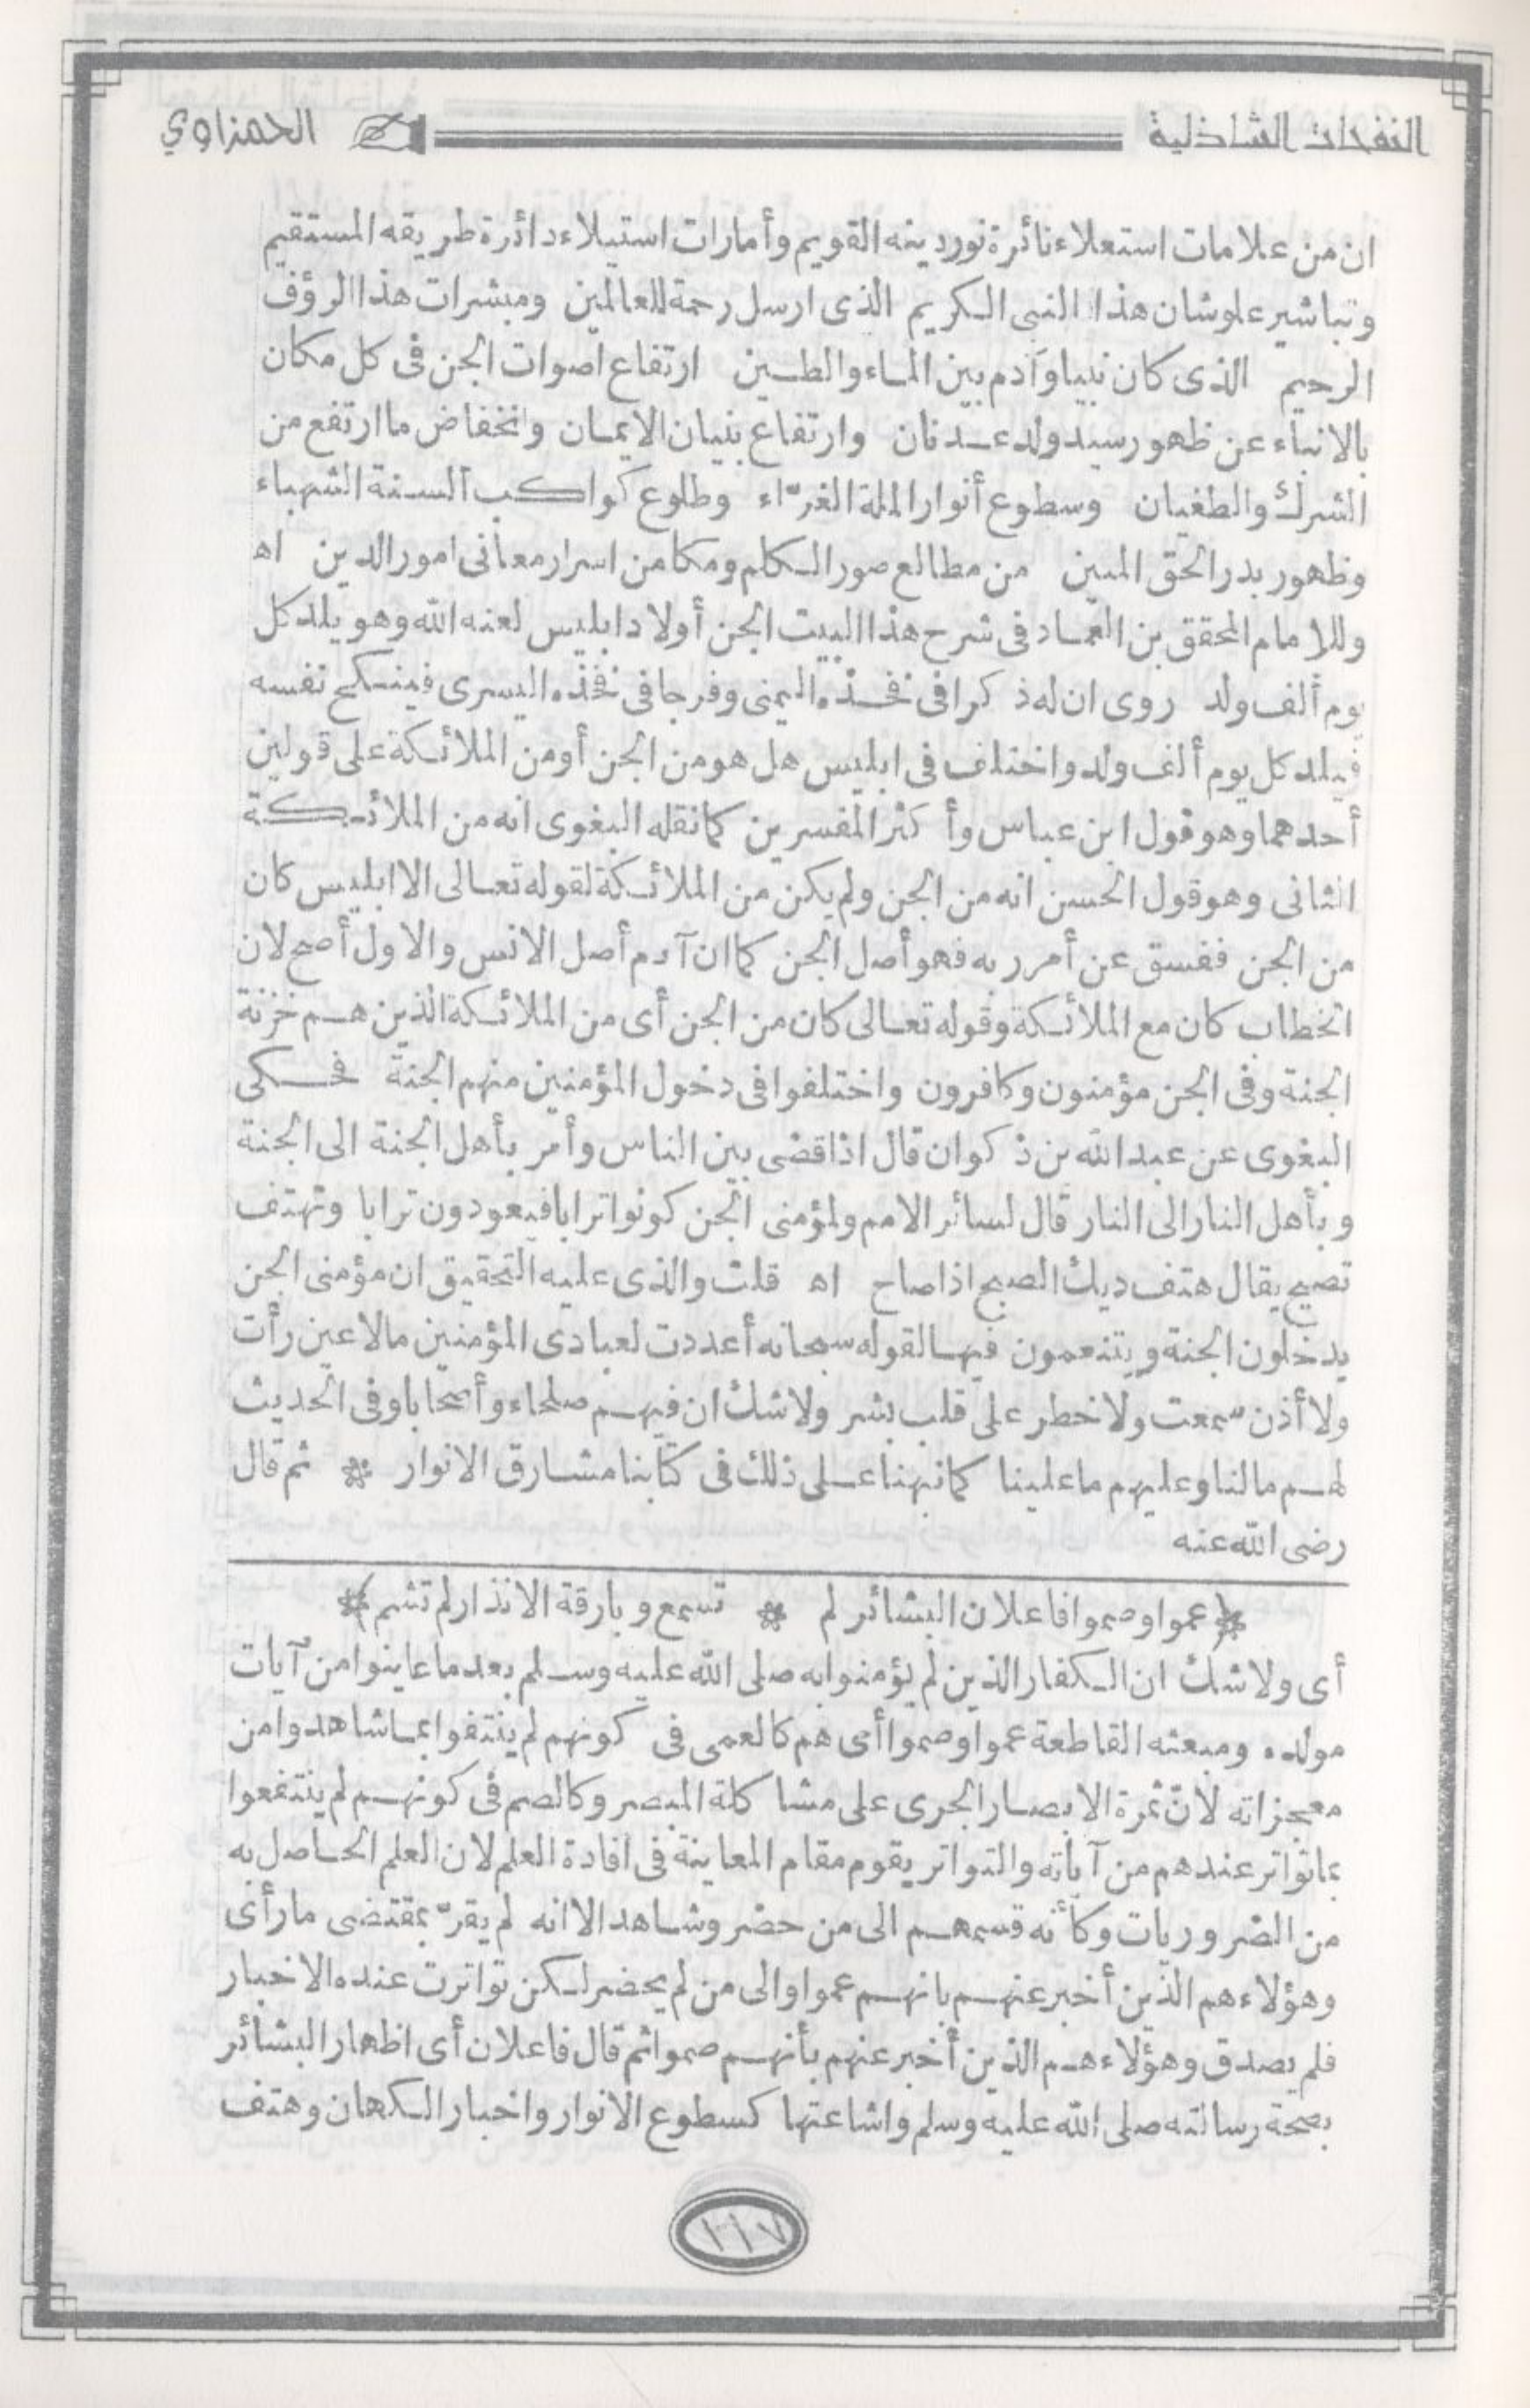 النفحات الشاذلية الحمزاوي
ان من علامات استعلاء نائرة نور دينه القويم وأمارات استيلاء دائرة طريقه المستقيم
وتباشير علو شان هذا النبى الكريم الذى ارسل رحمة للعالمين ومبشرات هذا الرؤف
الرحيم الذى كان نبيا وآدم بين الماء والطين ارتفاع اصوات الجن فى كل مكان
بالانباء عن ظهور سيد ولد عدنان وارتفاع بنيان الايمان وانخفاض ما ارتفع من
الشرك والطغيان وسطوع أنوار الملة الغرّاء وطلوع كواكب السنة الشهباء
وظهور بدر الحق المبين من مطالع صور الكلم ومكامن اسرار معانى امور الدين اه
وللامام المحقق بن العماد فى شرح هذا البيت الجن أولاد ابليس لعنه الله وهو يلد كل
يوم ألف ولد روى ان له ذكرا فى فخذه اليمنى وفرجا فى فخذه اليسرى فينكح نفسه
فيلد كل يوم ألف ولد واختلف فى ابليس هل هو من الجن أو من الملائكة على قولين
أحدهما وهو قول ابن عباس وأكثر المفسرين كما نقله البغوى انه من الملائكة
الثانى وهو قول الحسن انه من الجن ولم يكن من الملائكة لقوله تعالى الا ابليس كان
من الجن ففسق عن أمر ربه فهو أصل الجن كما ان آدم أصل الانس والاول أصح لان
الخطاب كان مع الملائكة وقوله تعالى كان من الجن أى من الملائكة الذين هم خزنة
الجنة وفى الجن مؤمنون وكافرون واختلفوا فى دخول المؤمنين منهم الجنة فحكى
البغوى عن عبد الله بن ذكوان قال اذا قضى بين الناس وأمر بأهل الجنة الى الجنة
وبأهل النار الى النار قال لسائر الامم ولمؤمنى الجن كونوا ترابا فيعودون ترابا وتهتف
تصيح يقال هتف ديك الصبح اذا صاح اه قلت والذى عليه التحقيق ان مؤمنى الجن
يدخلون الجنة ويتنعمون فيها لقوله سبحانه أعددت لعبادى المؤمنين مالا عين رأت
ولا أذن سمعت ولا خطر على قلب بشر ولا شك ان فيهم صلحاء وأصحابا وفى الحديث
لهم مالنا وعليهم ما علينا كما نبهنا على ذلك فى كتابنا مشارق الانوار * ثم قال
رضى الله عنه
* عموا وصموا فاعلان البشائر لم * تسمع وبارقة الانذار لم تشم *
أى ولا شك ان الكفار الذين لم يؤمنوا به صلى الله عليه وسلم بعد ما عاينوا من آيات
مولده ومبعثه القاطعة عموا وصموا أى هم كالعمى فى كونهم لم ينتفوا بما شاهدوا من
معجزاته لانّ ثمرة الابصار الجرى على مشاكلة المبصر وكالصم فى كونهم لم ينتفعوا
بما تواتر عندهم من آياته والتواتر يقوم مقام المعاينة فى افادة العلم لان العلم الحاصل به
من الضروريات وكأنه قسمهم الى من حضر وشاهد الا انه لم يقرّ بمقتضى ما رأى
وهؤلاء هم الذين أخبر عنهم بانهم عموا والى من لم يحضر لكن تواترت عنده الاخبار
فلم يصدق وهؤلاء هم الذين أخبر عنهم بأنهم صموا ثم قال فاعلان أى اظهار البشائر
بصحة رسالته صلى الله عليه وسلم واشاعتها كسطوع الانوار واخبار الكهان وهتف
١١٧